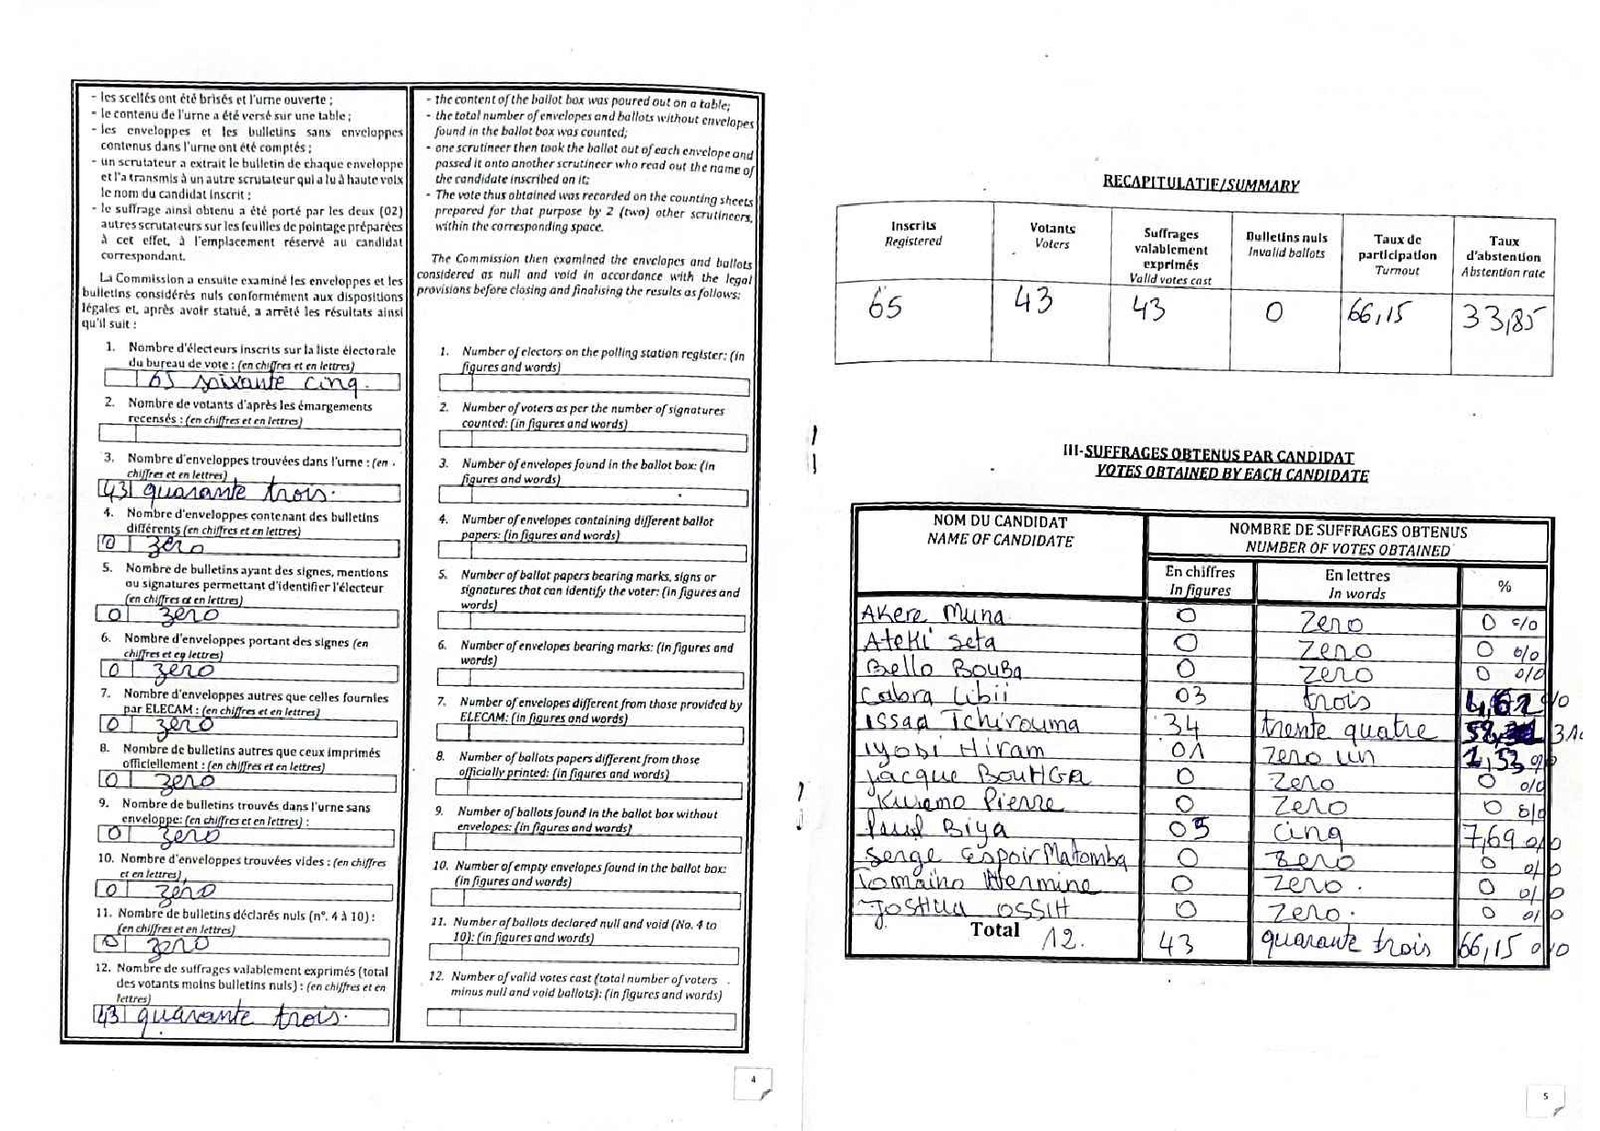 - les scellés ont été brisés et l'urne ouverte ;
- le contenu de l'urne a été versé sur une table ;
- les enveloppes et les bulletins sans enveloppes
contenus dans l'urne ont été comptés ;
- un scrutateur a extrait le bulletin de chaque enveloppe
et l'a transmis à un autre scrutateur qui a lu à haute voix
le nom du candidat inscrit ;
- le suffrage ainsi obtenu a été porté par les deux (02)
autres scrutateurs sur les feuilles de pointage préparées
à cet effet, à l'emplacement réservé au candidat
correspondant.
La Commission a ensuite examiné les enveloppes et les
bulletins considérés nuls conformément aux dispositions
légales et, après avoir statué, a arrêté les résultats ainsi
qu'il suit :
1. Nombre d'électeurs inscrits sur la liste électorale
du bureau de vote : (en chiffres et en lettres)
65 soixante cinq.
2. Nombre de votants d'après les émargements
recensés : (en chiffres et en lettres)
3. Nombre d'enveloppes trouvées dans l'urne : (en
chiffres et en lettres)
43 quarante trois.
4. Nombre d'enveloppes contenant des bulletins
différents (en chiffres et en lettres)
0 zéro
5. Nombre de bulletins ayant des signes, mentions
ou signatures permettant d'identifier l'électeur
(en chiffres et en lettres)
0 zero
6. Nombre d'enveloppes portant des signes (en
chiffres et en lettres)
0 zero
7. Nombre d'enveloppes autres que celles fournies
par ELECAM : (en chiffres et en lettres)
0 zero
8. Nombre de bulletins autres que ceux imprimés
officiellement : (en chiffres et en lettres)
0 zero
9. Nombre de bulletins trouvés dans l'urne sans
enveloppe: (en chiffres et en lettres) :
0 zero
10. Nombre d'enveloppes trouvées vides : (en chiffres
et en lettres)
0 zero
11. Nombre de bulletins déclarés nuls (n°. 4 à 10) :
(en chiffres et en lettres)
0 zero
12. Nombre de suffrages valablement exprimés (total
des votants moins bulletins nuls) : (en chiffres et en
lettres)
43 quarante trois.
- the content of the ballot box was poured out on a table;
- the total number of envelopes and ballots without envelopes
found in the ballot box was counted;
- one scrutineer then took the ballot out of each envelope and
passed it onto another scrutineer who read out the name of
the candidate inscribed on it;
- The vote thus obtained was recorded on the counting sheets
prepared for that purpose by 2 (two) other scrutineers,
within the corresponding space.
The Commission then examined the envelopes and ballots
considered as null and void in accordance with the legal
provisions before closing and finalising the results as follows:
1. Number of electors on the polling station register: (in
figures and words)
2. Number of voters as per the number of signatures
counted: (in figures and words)
3. Number of envelopes found in the ballot box: (in
figures and words)
4. Number of envelopes containing different ballot
papers: (in figures and words)
5. Number of ballot papers bearing marks, signs or
signatures that can identify the voter: (in figures and
words)
6. Number of envelopes bearing marks: (in figures and
words)
7. Number of envelopes different from those provided by
ELECAM: (in figures and words)
8. Number of ballots papers different from those
officially printed: (in figures and words)
9. Number of ballots found in the ballot box without
envelopes: (in figures and words)
10. Number of empty envelopes found in the ballot box:
(in figures and words)
11. Number of ballots declared null and void (No. 4 to
10): (in figures and words)
12. Number of valid votes cast (total number of voters
minus null and void ballots): (in figures and words)
4
RECAPITULATIF/SUMMARY
Inscrits Registered
Votants Voters
Suffrages valablement exprimés Valid votes cast
Bulletins nuls Invalid ballots
Taux de participation Turnout
Taux d'abstention Abstention rate
65 43 43 0 66,15 33,85
III-SUFFRAGES OBTENUS PAR CANDIDAT
VOTES OBTAINED BY EACH CANDIDATE
NOM DU CANDIDAT NAME OF CANDIDATE
NOMBRE DE SUFFRAGES OBTENUS
NUMBER OF VOTES OBTAINED
En chiffres In figures
En lettres In words
%
Akere Muna 0 zero 0 %
Ateki Seta 0 zero 0 %
Bello Bouba 0 zero 0 %
Cabra Libii 03 trois 4,62 %
Issaa Tchirouma 34 trente quatre
Iyobi Hiram 01 zero un %
Jacque Bouhga 0 zero 0 %
Kwemo Pierre 0 zero 0 %
Paul Biya 05 cinq 7,69 %
Serge Espoir Matomba 0 zero 0 %
Tomaino Hermine 0 zero. 0 %
Joshua OSSIH 0 zero. 0 %
Total 12. 43 quarante trois 66,15 %
5